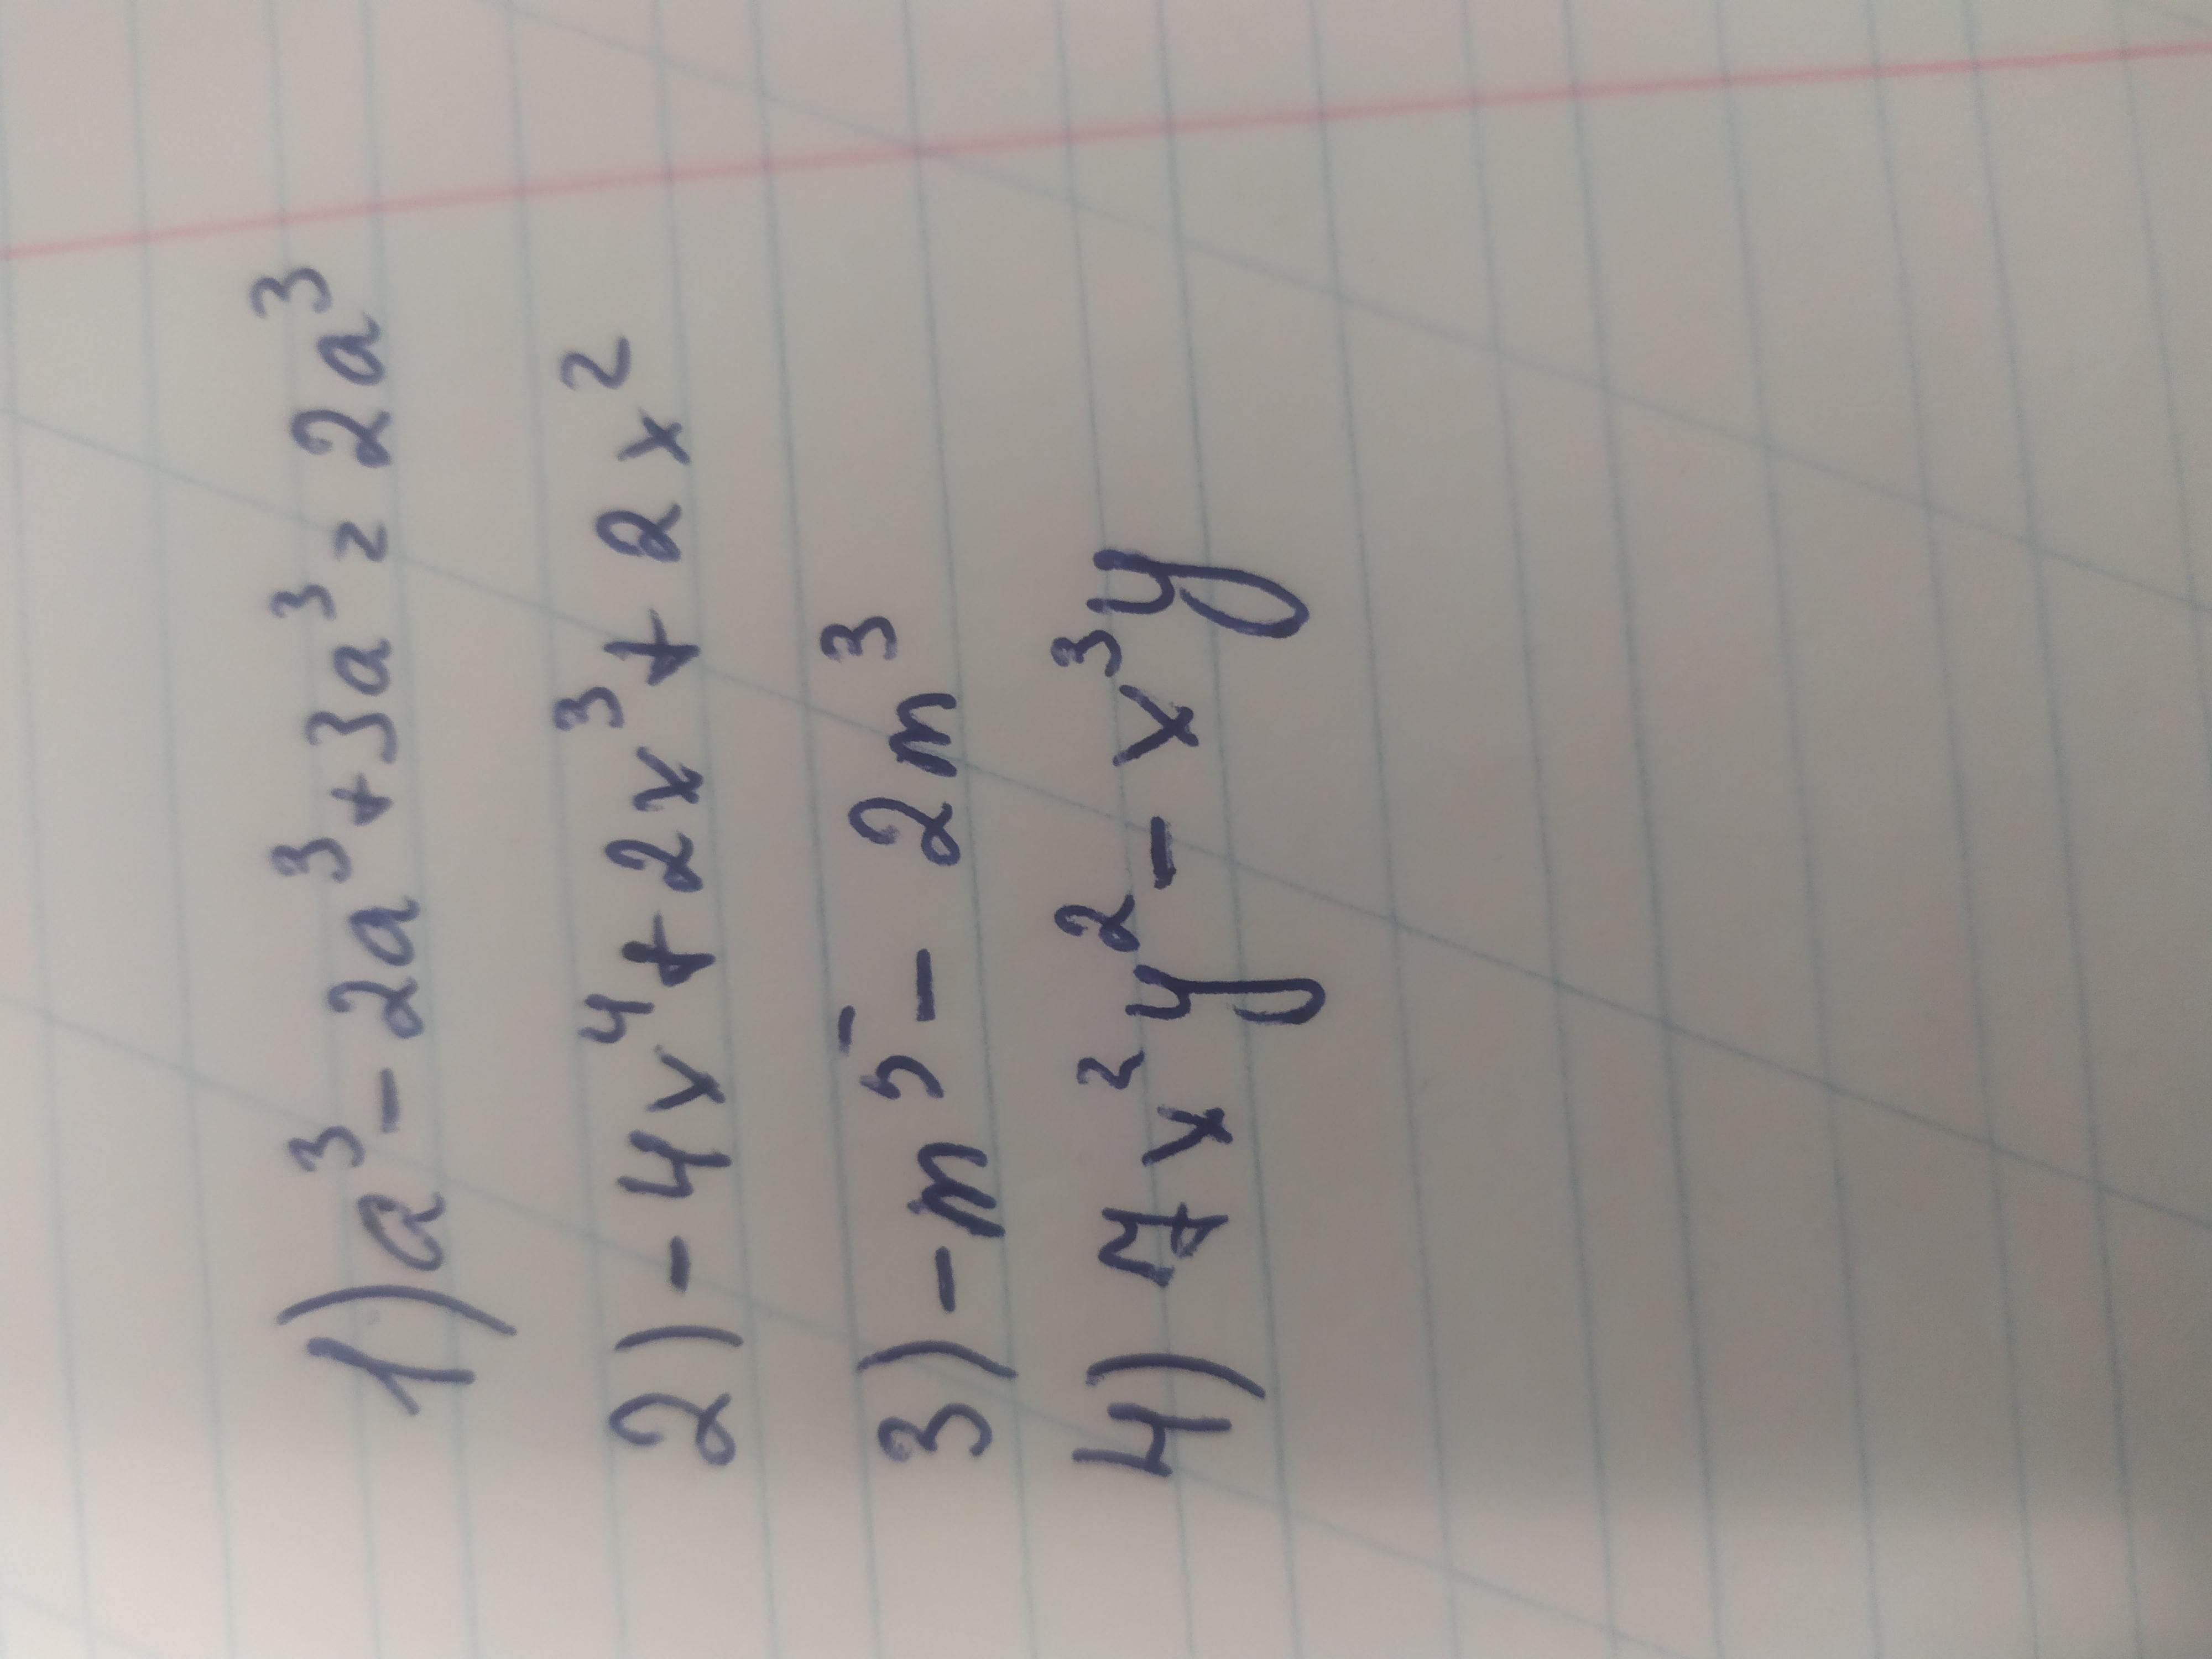 1) a³ - 2a³ + 3a³ = 2a³
2) - 4x⁴ + 2x³ + 2x²
3) - m⁵ - 2m³
4) 7x²y² - x³y